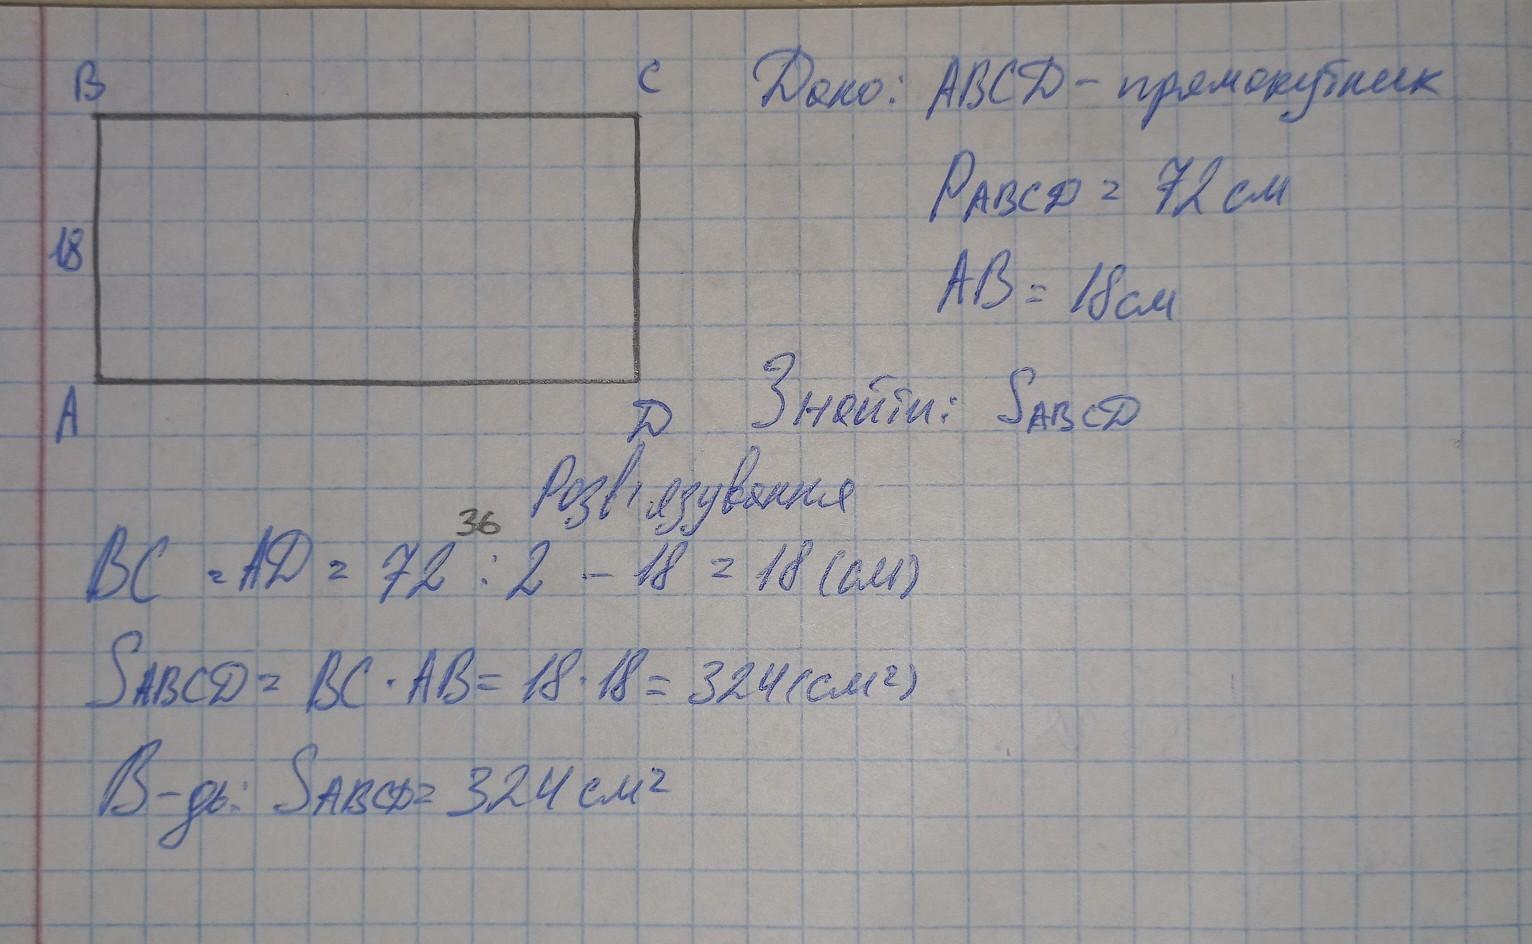 B C Дано: ABCD - прямокутник
PABCD = 72 см
18
AB = 18см
A D Знайти: SABCD
Розв'язування
36
BC = AD = 72 : 2 - 18 = 18 (см)
SABCD = BC · AB = 18 · 18 = 324 (см²)
В-дь: SABCD = 324 см²